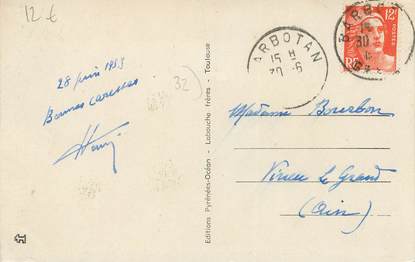 12 €
28 juin 1953
Bonnes caresses
Henri
32
Editions Pyrénées-Océan - Labouche Frères - Toulouse
BARBOTAN
15 H
30 -6
BARBO
15
30
12F
POSTES
RF
Madame Bourbon
Virieu Le Grand
(Ain)